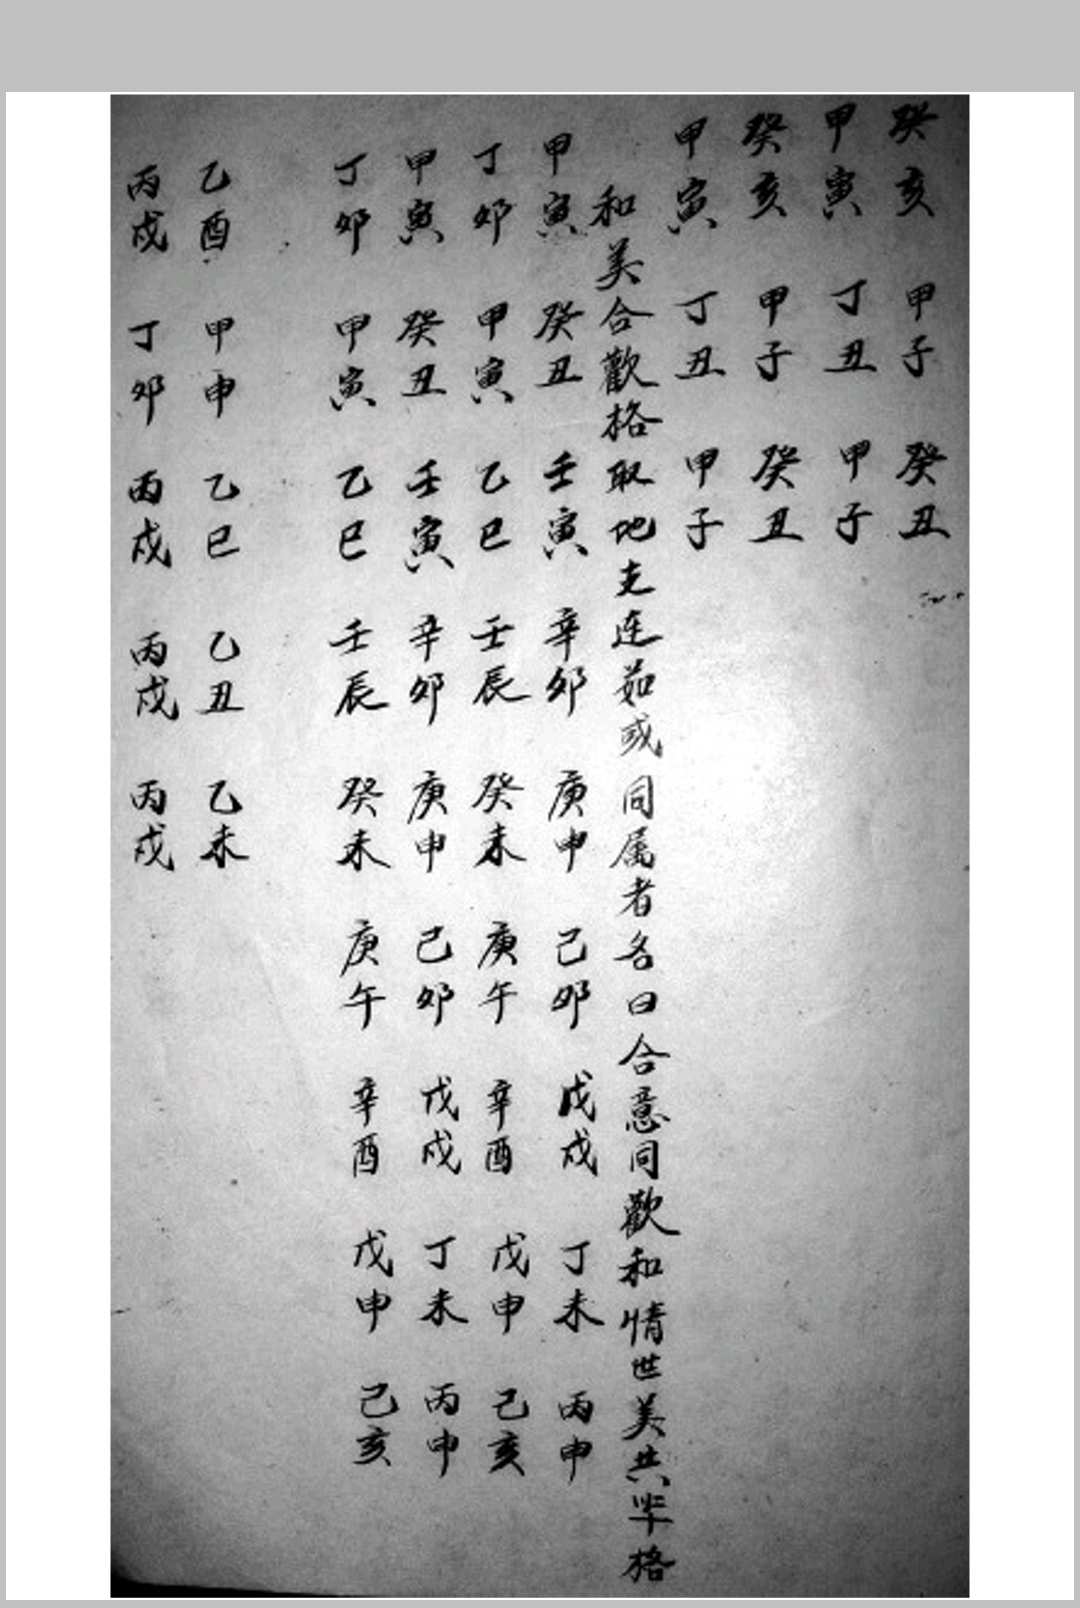 癸亥 甲子 癸丑
甲寅 丁丑 甲子
癸亥 甲子 癸丑
甲寅 丁丑 甲子
和美合歡格取地支连茹或同属者名曰合意同歡和情世美共半格
甲寅 癸丑 壬寅 辛卯 庚申 己卯 戊戌 丁未 丙申
丁卯 甲寅 乙巳 壬辰 癸未 庚午 辛酉 戊申 己亥
甲寅 癸丑 壬寅 辛卯 庚申 己卯 戊戌 丁未 丙申
丁卯 甲寅 乙巳 壬辰 癸未 庚午 辛酉 戊申 己亥
乙酉 甲申 乙巳 乙丑 乙未
丙戌 丁卯 丙戌 丙戌 丙戌